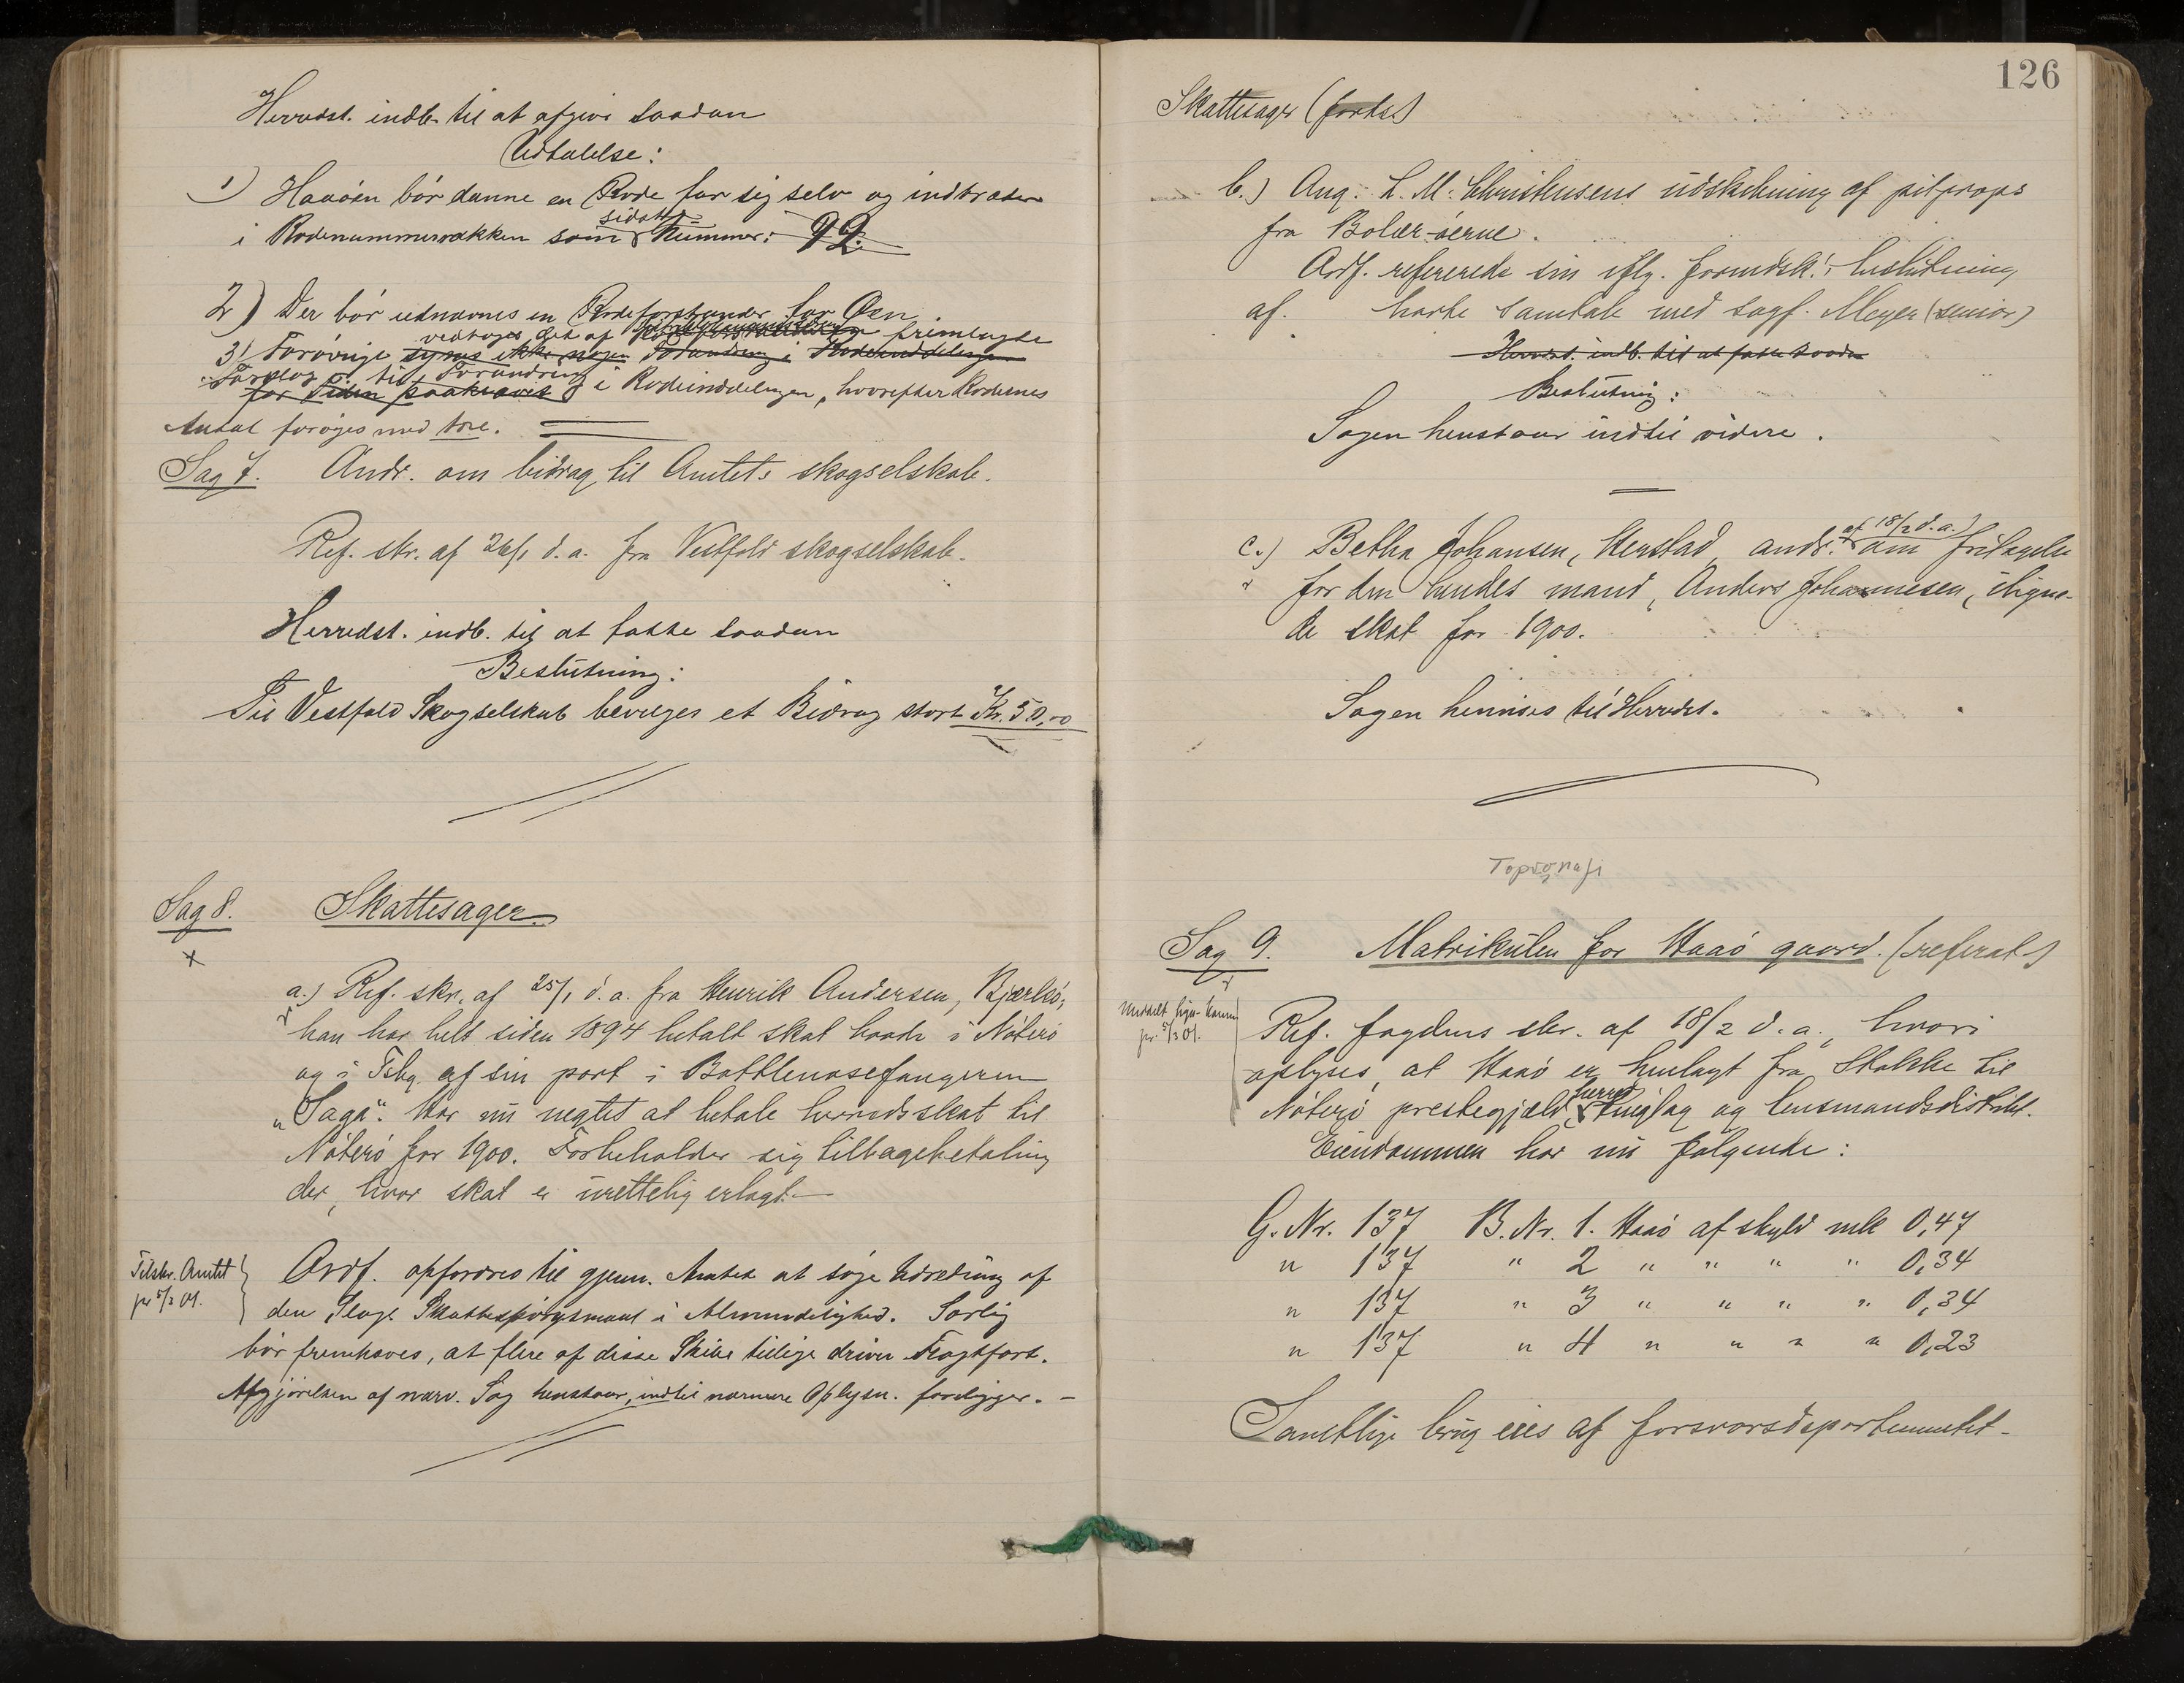 Herredst. indb. til at afgive saadan
Udtalelse:
1) Haaöen bör danne en Rode for sig selv og indtræder
sidste
i Rodenummerrækken som Nummer: 92.
2) Der bör udnævnes en Rodeforstander for Öen
vedtoges det af fremlagte
3) Forövrigt synes ikke nogen Forandring i Rodeinddelingen
Forslag til Forandring
for Tiden paakrævet i Rodeinddelingen, hvorefter Rodernes
Antal foröges med tre.
Sag 7. Andr. om bidrag til Amtets skogselskab.
Ref. skr. af 26/1 d. a. fra Vestfold skogselskab.
Herredst. indb. til at fatte saadan
Beslutning:
Til Vestfold Skogselskab bevilges et Bidrag stort Kr. 50,00
Sag 8. Skattesager.
a.) Ref. skr. af 25/1 d. a. fra Henrik Andersen, Bjærkö;
han har helt siden 1894 betalt skat baade i Nöterö
og i Tsbg. af sin part i Bottlenosefangeren
„Saga". Har nu negtet at betale herredsskat til
Nöterö for 1900. Forbeholder sig tilbagebetaling
der, hvor skat er urettelig erlagt.—
Tilskr. Amtet
pr 5/3 01.
Ordf. opfordres til gjenn. Amtet at söge Udredning af
den Slags Skattespörgsmaal i Almindelighed. Særlig
bör fremhæves, at flere af disse Skibe tillige driver Fragtfart.
Afgjörelsen af nærv. Sag henstaar, indtil nærmere Oplysn. foreligger. —
126
Skattesager (forts)
b.) Ang. L. M. Christensens udskibning af pitprops
fra Bolær-öerne.
Ordf. refererede sin iflg. formdsk.'s beslutning
af. havte samtale med sagf. Meyer (senior)
Herredst. indb. til at fatte saadan
Beslutning:
Sagen henstaar indtil videre.
af 18/2 d. a.)
c.) Betha Johansen, Herstad, andr. om fritagelse
for den hendes mand, Anders Johannesen, iligne-
de skat for 1900.
Sagen henvises til Herredst.
Topografi
Sag 9. Matrikülen for Haaö gaard. (referat)
Meddelt lign. komm
pr. 5/3 01.
Ref. fogdens skr. af 18/2 d. a., hvori
oplyses, at Haaö er henlagt fra Stokke til
herred
Nöterö prestegjæld, tinglag og lensmandsdistrikt.
Eiendommen har nu fölgende:
G. Nr. 137 B. Nr. 1. Haaö af skyld mk 0,47
" 137 " 2 " " " " 0,34
" 137 " 3 " " " " 0,34
" 137 " 4 " " " " 0,23
Samtlige brug eies af forsvarsdepartementet—